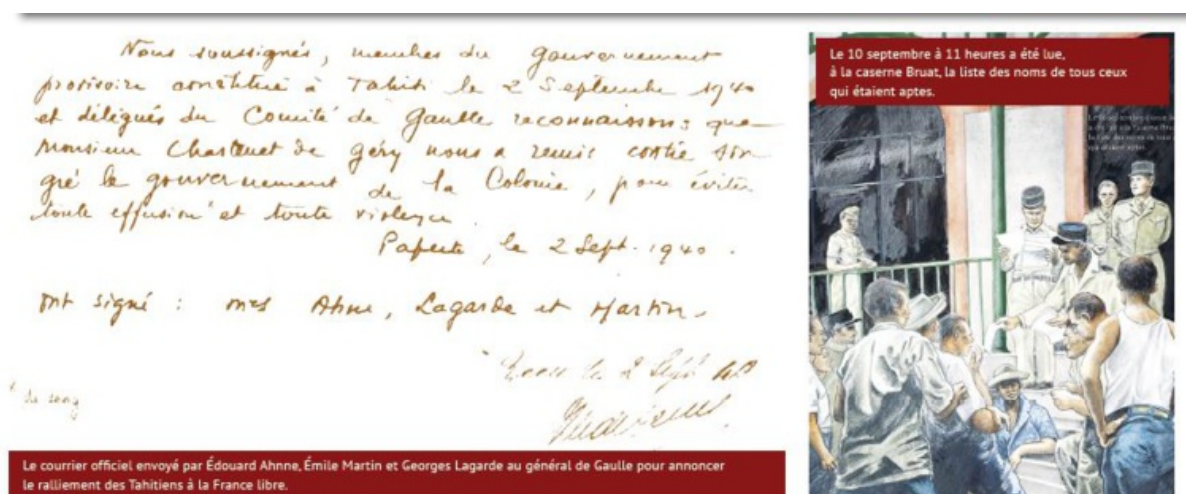 Nous soussignés, membres du gouvernement
provisoire constitué à Tahiti le 2 Septembre 1940
et délégués du Comité de Gaulle reconnaissons que
Monsieur Chastenet de Géry nous a remis contre son
gré le gouvernement de la Colonie, pour éviter
toute effusion et toute violence.
Papeete, le 2 Sept. 1940.
Ont signé : mrs Ahne, Lagarde et Martin.
le 2 Sept 40
de sang
Le courrier officiel envoyé par Édouard Ahnne, Émile Martin et Georges Lagarde au général de Gaulle pour annoncer
le ralliement des Tahitiens à la France libre.
Le 10 septembre à 11 heures a été lue,
à la caserne Bruat, la liste des noms de tous ceux
qui étaient aptes.